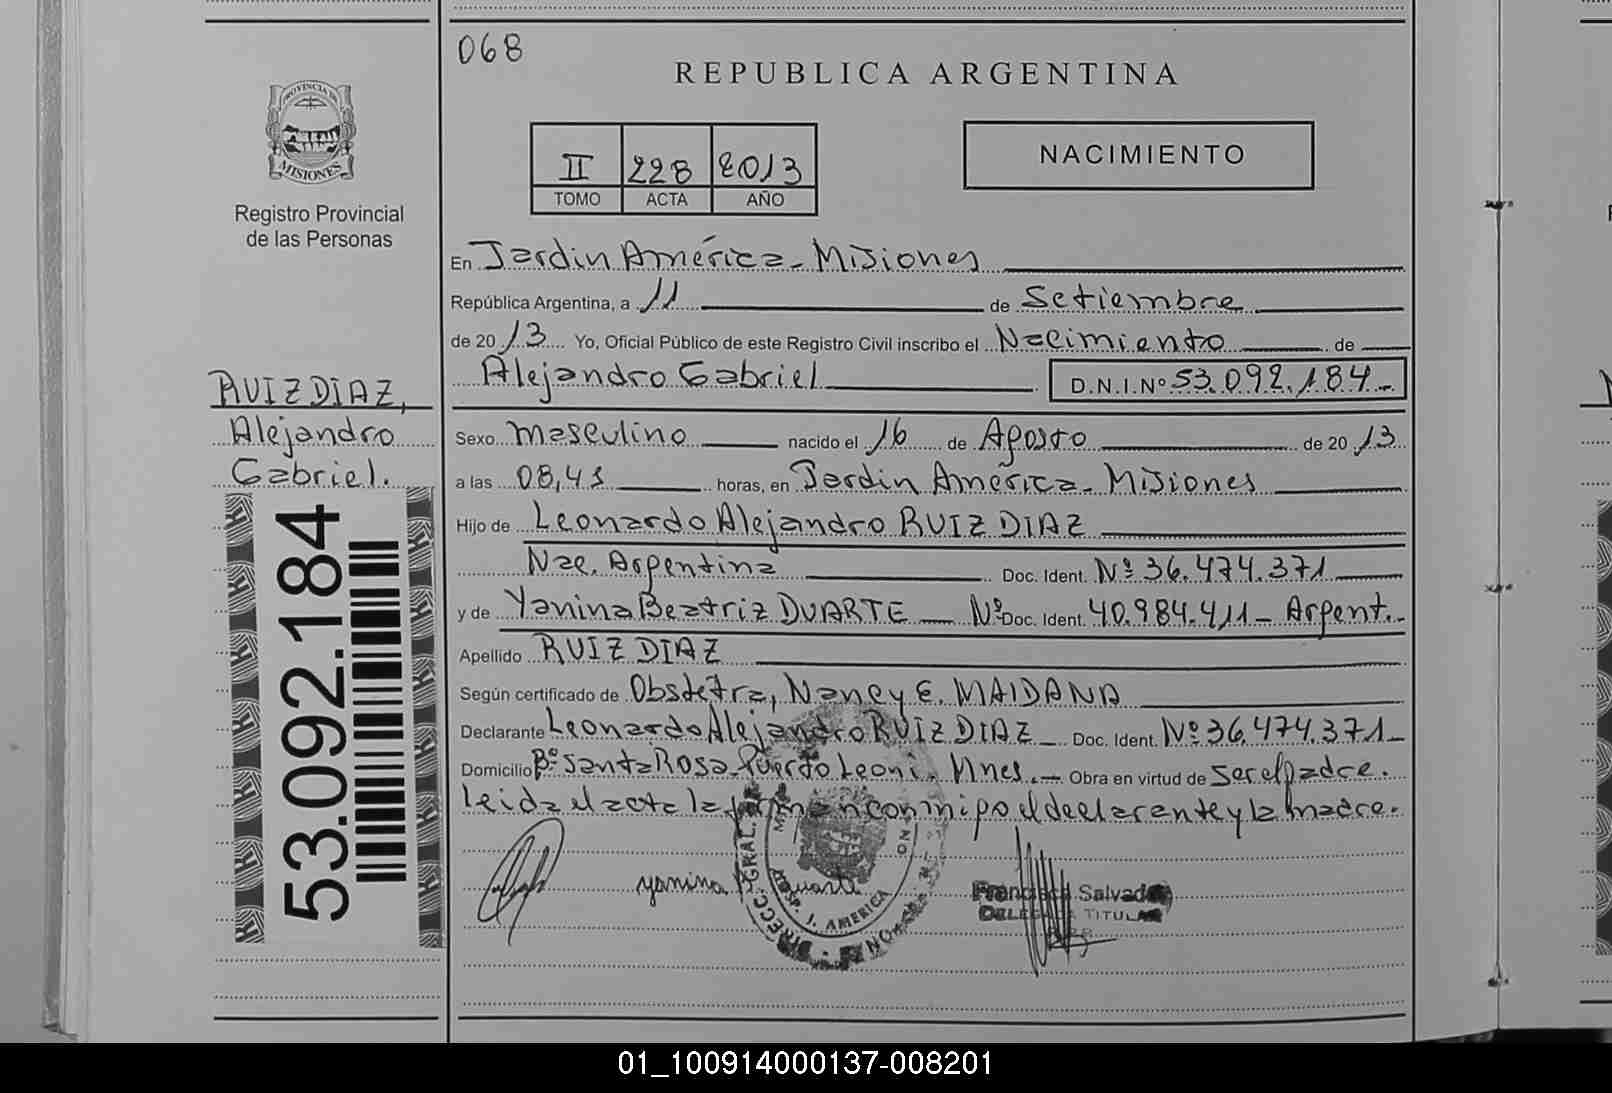 068
REPUBLICA ARGENTINA
PROVINCIA DE
MISIONES
Registro Provincial
de las Personas
II 228 2013
TOMO ACTA AÑO
NACIMIENTO
En Jardin América - Misiones
República Argentina, a 11 de Setiembre
de 2013 Yo, Oficial Público de este Registro Civil inscribo el Nacimiento de
Alejandro Gabriel D.N.I.Nº 53.092.184-
RUIZ DIAZ,
Alejandro
Gabriel.
53.092.184
Sexo Masculino nacido el 16 de Agosto de 2013
a las 08,45 horas, en Jardin América - Misiones
Hijo de Leonardo Alejandro RUIZ DIAZ
Nac. Argentina Doc. Ident. Nº 36.474.371
y de Yanina Beatriz DUARTE Nº Doc. Ident. 40.984.411 - Argent.-
Apellido RUIZ DIAZ
Según certificado de Obstetra, Nancy E. MAIDANA
Declarante Leonardo Alejandro RUIZ DIAZ Doc. Ident. Nº 36.474.371-
Domicilio Bº Santa Rosa - Puerto Leoni. Mnes. - Obra en virtud de ser el padre.
Leida el acta la firman conmigo el declarante y la madre.
yanina B. Duarte
DIRECC. GRAL.
J. AMERICA
Francisca Salvador
DELEGADA TITULAR
01_100914000137-008201